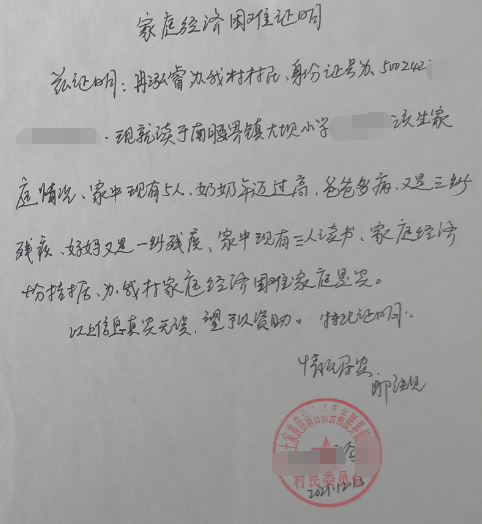 家庭经济困难证明
兹证明：冉泓睿为我村村民、身份证号为、500242
，现就读于南腰界镇大坝小学 该生家
庭情况、家中现有5人、奶奶年迈过高、爸爸多病、又是三级
残疾、妈妈又是一级残疾、家中现有三人读书、家庭经济
十分拮据、为我村家庭经济困难家庭是实。
以上信息真实无误，望予以资助。 特此证明。
情况属实
村民委员会
2021.12.13